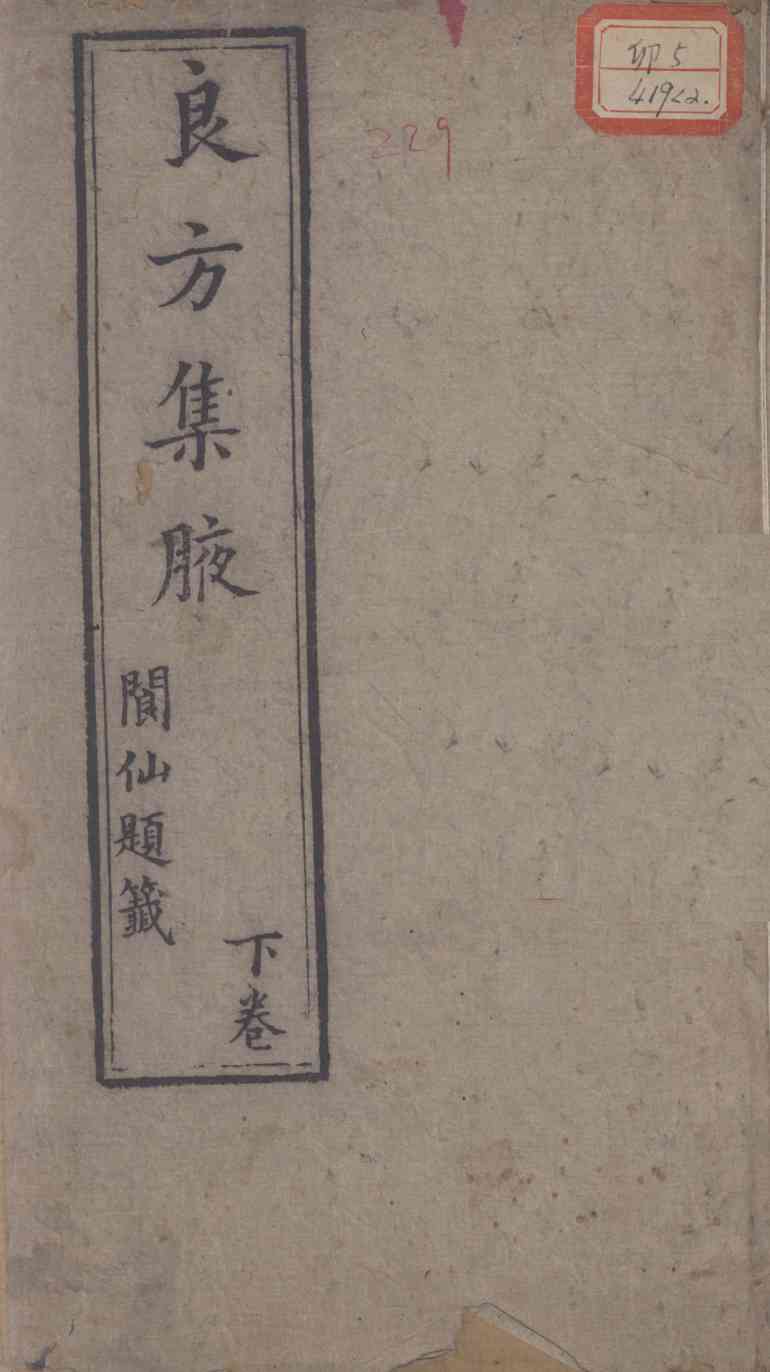 良方集腋
下卷
閬仙題籤
卯5
419<2.
229